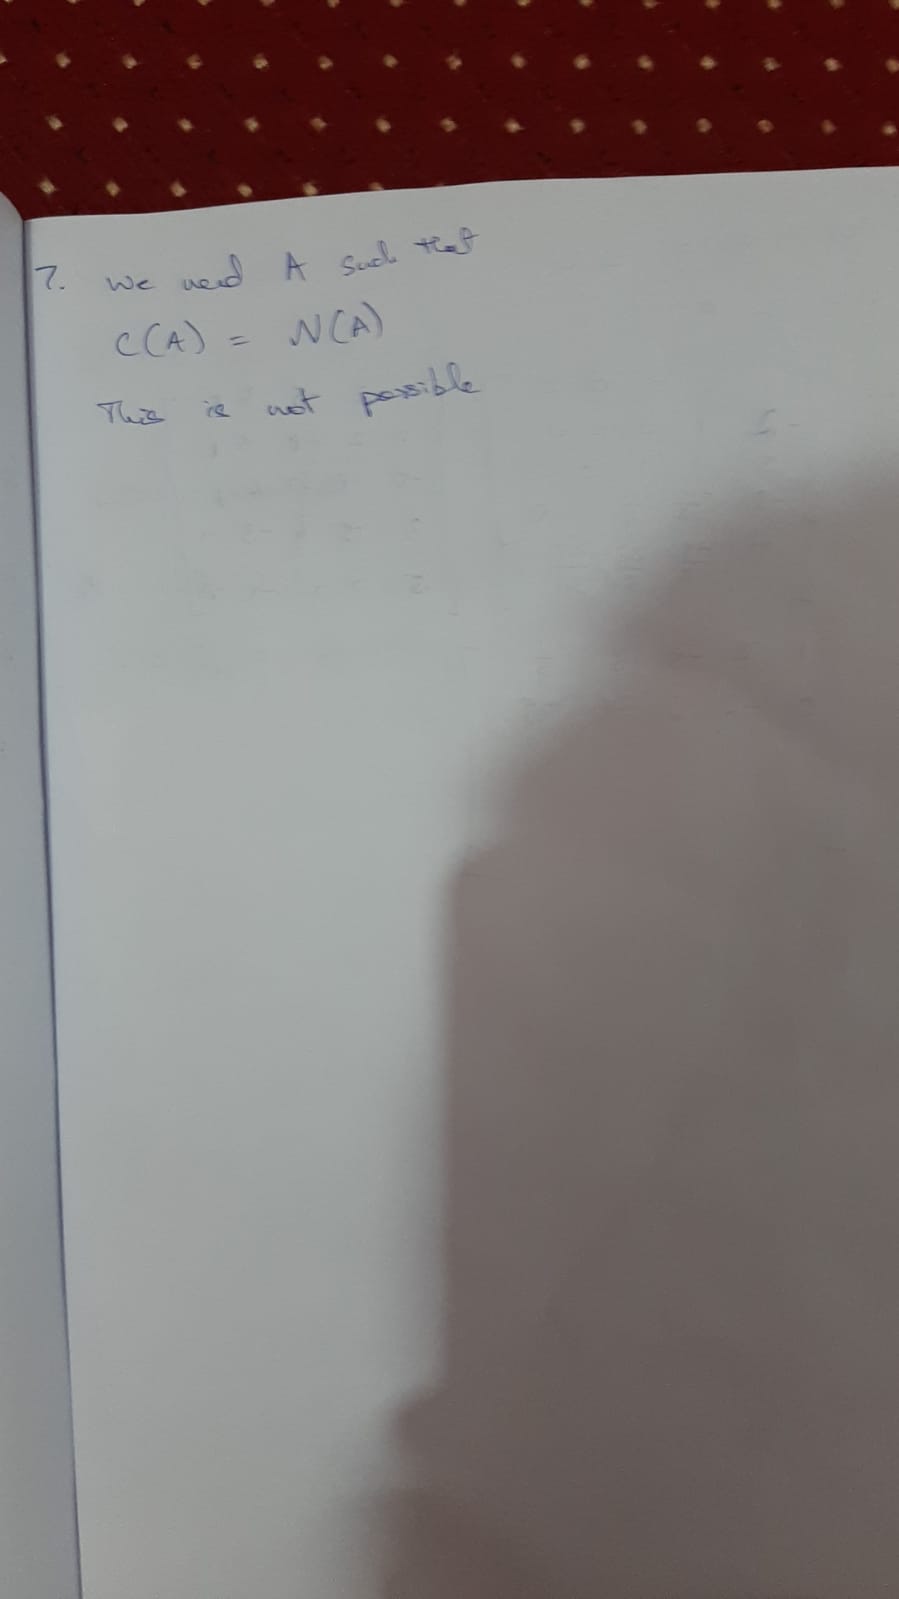 7. We need A such that
C(A) = N(A)
This is not possible